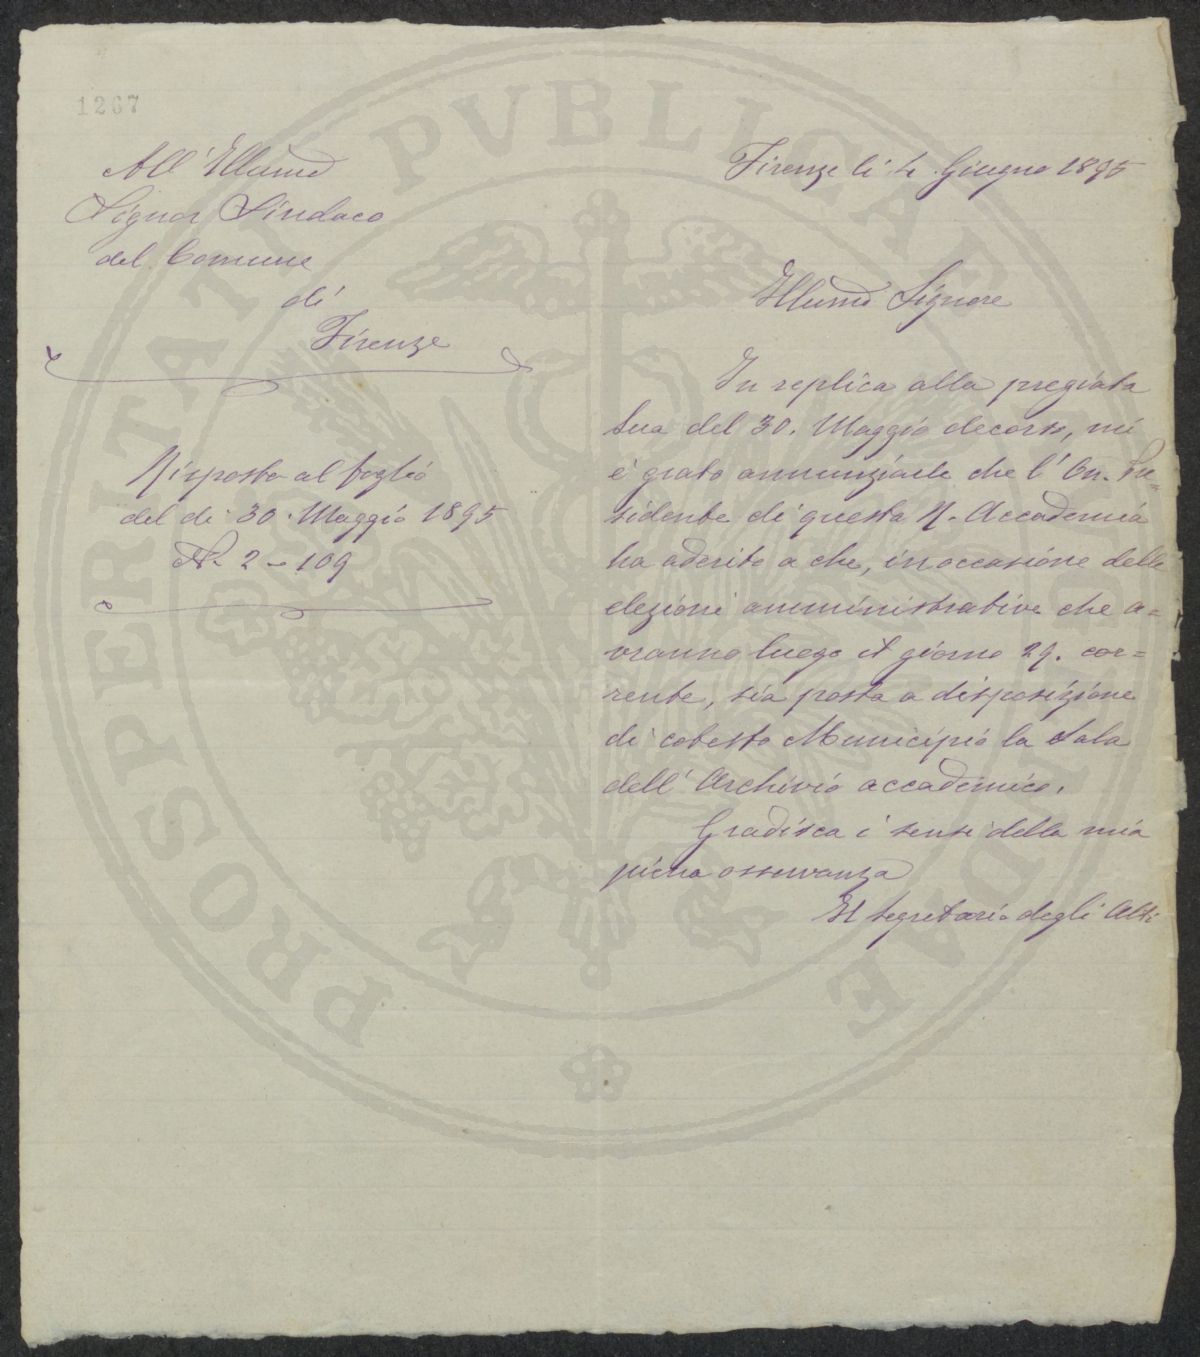 1267
All' Illmo
Signor Sindaco
del Comune
di
Firenze
Risposta al foglio
del di 30. Maggio 1895
N. 2-109
Firenze li 4. Giugno 1895
Illmo Signore
In replica alla pregiata
Sua del 30. Maggio decorso, mi
è grato annunziarle che l'On. Pre=
sidente di questa R. Accademia
ha aderito a che, in occasione delle
elezioni amministrative che a=
vranno luogo il giorno 29. cor=
rente, sia posta a disposizione
di cotesto Municipio la Sala
dell'Archivio accademico.
Gradisca i sensi della mia
piena osservanza
Il Segretario degli Atti
PROSPERITATI PVBLICAE AVGENDAE